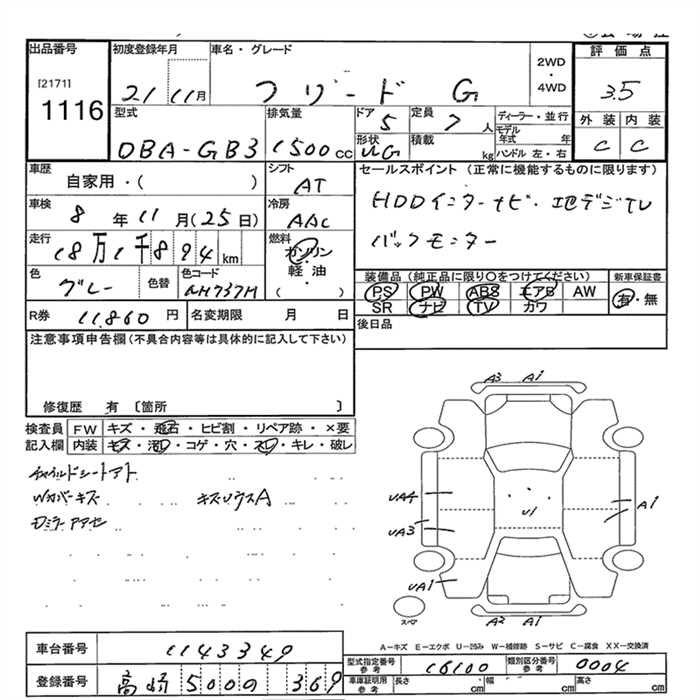 出品番号 初度登録年月 車名・グレード 2WD・4WD 評価点
[2171]
1116
21 11月 フリード G 3.5
型式 排気量 ドア 定員 ディーラー・並行 外装 内装
DBA-GB3 1500cc 5 7人 モデル年式 年 C C
形状 積載
UG kg ハンドル 左・右
車歴 シフト セールスポイント (正常に機能するものに限ります)
自家用・( ) AT HDDインターナビ・地デジTV
車検 冷房
8年11月(25日) AAC バックモニター
走行 燃料
18万1千894km ガソリン・軽油
装備品 (純正品に限り○をつけてください) 新車保証書
色 色替 色コード ( ) PS PW ABS エアB AW 有・無
グレー NH737M SR ナビ TV カワ
R券 11,860円 名変期限 月 日 後日品
注意事項申告欄(不具合内容等は具体的に記入して下さい)
修復歴 有 〔箇所 〕
検査員 FW キズ・飛石・ヒビ割・リペア跡・×要
記入欄 内装 キズ・汚レ・コゲ・穴・スレ・キレ・破レ
チャイルドシートアト
Wカバーキズ キズ ウスA
A3 A1
UA4 A1
U1
UA3
UA1
スペア A2 A1
A-キズ E-エクボ U-凹み W-補修跡 S-サビ C-腐食 XX-交換済
車台番号 1143349
型式指定番号 参考 16100 類別区分番号 参考 0004
登録番号 高崎 500 の 369
車庫証明用 参考 長さ cm 幅 cm 高さ cm